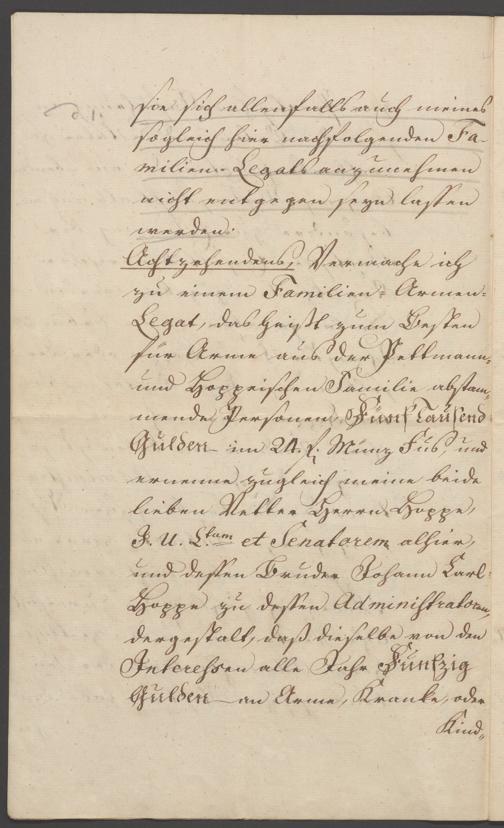 sie sich allenfalls auch meines
sogleich hier nachfolgenden Fa-
milien-Legats anzunehmen
nicht entgegen seyn lassen
werden.
Achtzehendens, Vermache ich
zu einem Familien-Armen-
Legat, das heißt zum Besten
für Arme aus der Pettmann-
und Hoppeischen Familie abstam-
mende Personen, Fünf Tausend
Gulden im 24. f. Münz Fus, und
ernenne zugleich meine beide
lieben Vetter Herrn Hoppe,
J. U. Ltum et Senatorem alhier,
und dessen Bruder Johann Carl
Hoppe zu dessen Administratoren,
dergestalt, daß dieselbe von den
Interessen alle Jahr Funfzig
Gulden an Arme, Kranke, oder
Kind-